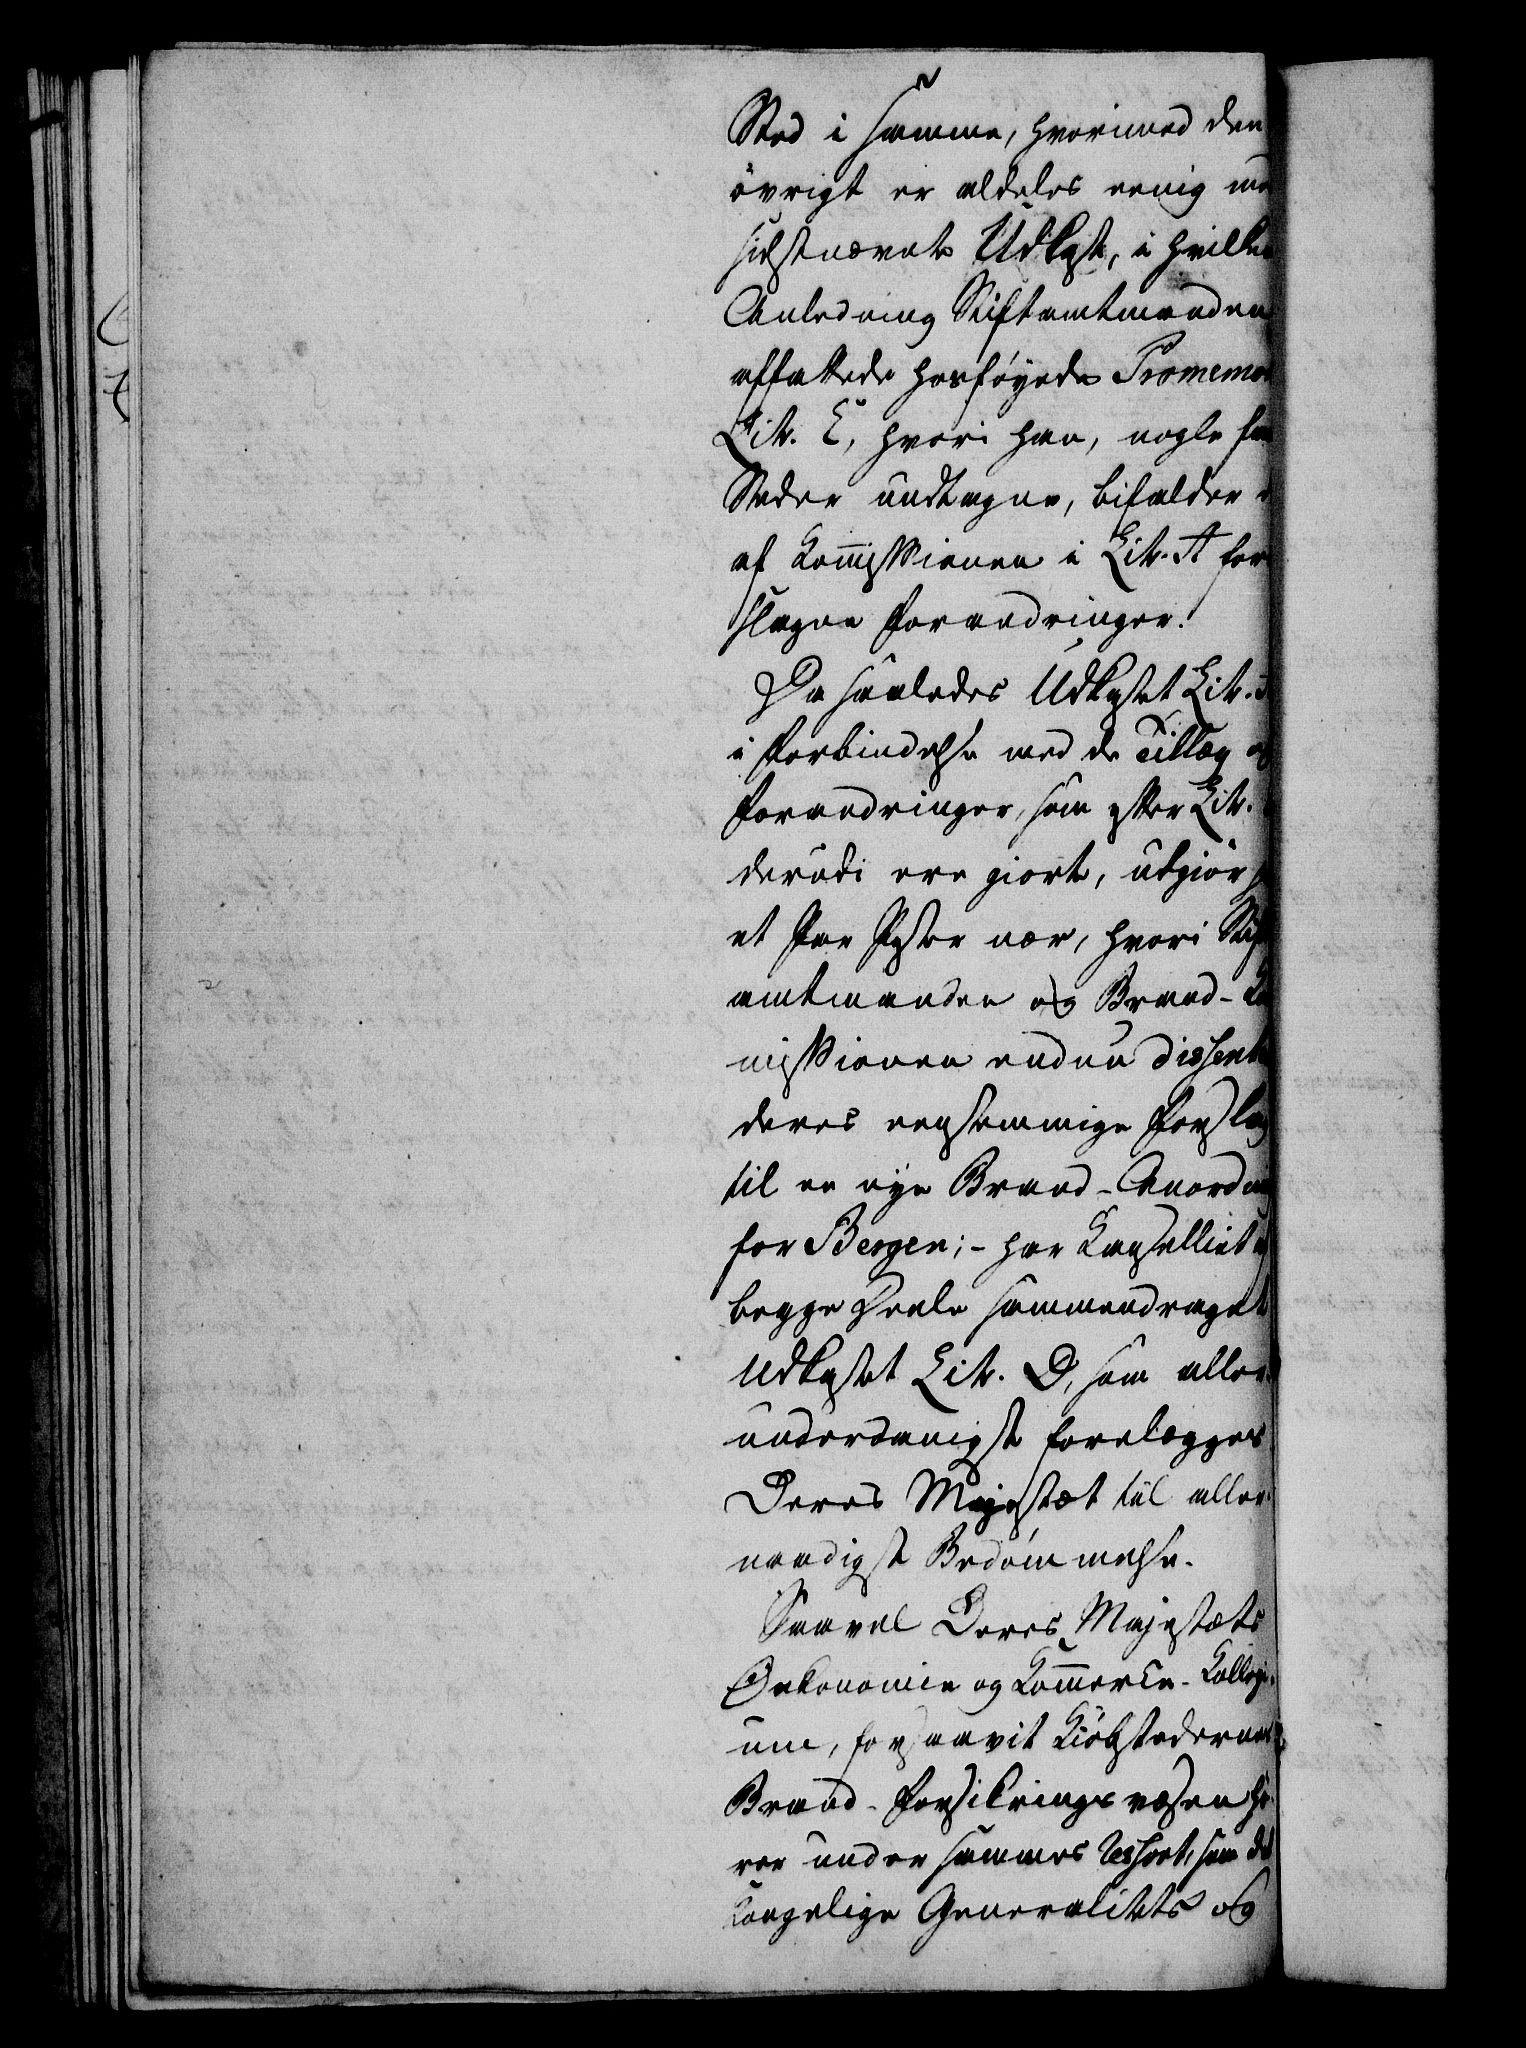 Sted i samme, hvorimod den
övrigt er aldeles eenig me
sidstnævnte Udkast, i hvilken
Anledning Stiftamtmanden
affattede hosföyede Promemor
Lit. C, hvori han, nogle faa
Steder undtagne, bifalder d
af Kom̄issionen i Lit. A fore
slagne Forandringer.
Da saaledes Udkastet Lit.
i Forbindelse med de Tillæg og
Forandringer, som efter Lit.
derudi ere giorte, udgiör
et Par Poster nær, hvori Stift
amtmanden og Brand-Ko
missionen endnu dissenti
deres eenstemmige Forslag
til en nye Brand-Anordni
for Bergen; - har Kancelliet
begge Deele sammendraget
Udkastet Lit. D, som aller-
underdanigst forelægges
Deres Majestæt til aller-
naadigst Bedömmelse.
Saavel Deres Majestæts
Oekonomie og Kom̄erce-Kollegi-
um, forsaavit Kiöbstædernes
Brand-Forsikringsvæsen hö-
rer under sammes Ressort, som det
Kongelige Generalitets og